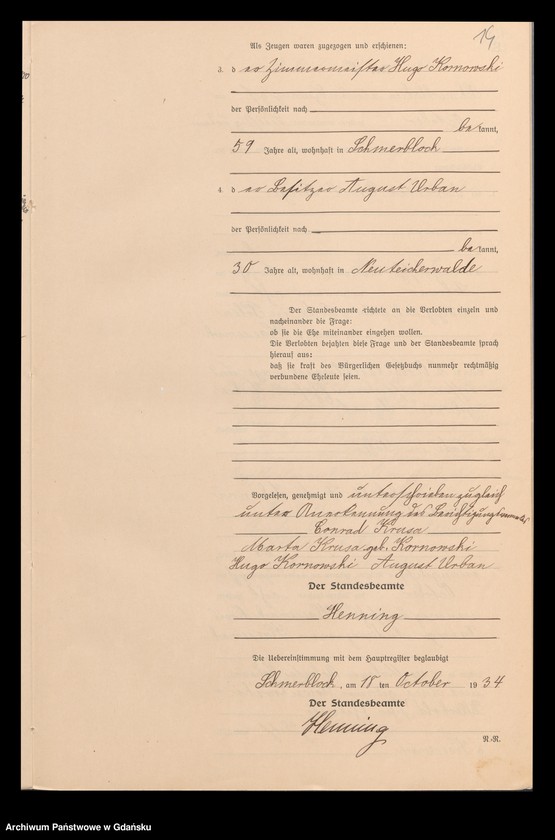 14
Als Zeugen waren zugezogen und erschienen:
3. d er Zimmermeister Hugo Kornowski
der Persönlichkeit nach
be kannt,
59 Jahre alt, wohnhaft in Schmerblock
4. d er Besitzer August Urban
der Persönlichkeit nach
be kannt,
30 Jahre alt, wohnhaft in Neuteicherwalde
Der Standesbeamte richtete an die Verlobten einzeln und
nacheinander die Frage:
ob sie die Ehe miteinander eingehen wollen.
Die Verlobten bejahten diese Frage und der Standesbeamte sprach
hierauf aus:
daß sie kraft des Bürgerlichen Gesetzbuchs nunmehr rechtmäßig
verbundene Eheleute seien.
Vorgelesen, genehmigt und unterschrieben zugleich
unter Anerkennung des Berichtigungsvermerks
Conrad Krusa
Marta Krusa geb. Kornowski
Hugo Kornowski August Urban
Der Standesbeamte
Henning
Die Uebereinstimmung mit dem Hauptregister beglaubigt
Schmerblock, am 18 ten October 19 34
Der Standesbeamte
Henning
N.-R.
Archiwum Państwowe w Gdańsku